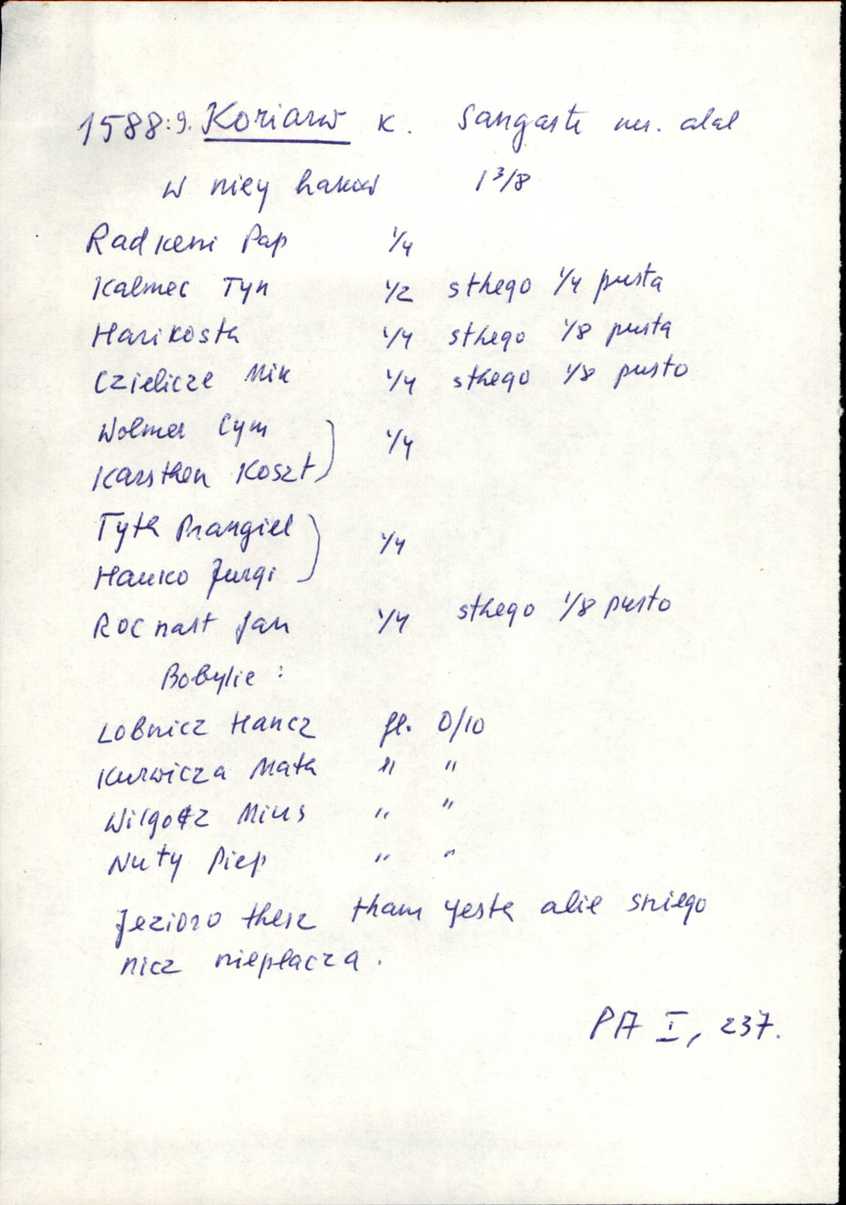 1588:9. Koriarw k. Sangaste mr. alal
w niey hakow 1 3/8
Radkeni Pap 1/4
Kalmec Tyn 1/2 sthego 1/4 pusta
Harikosth 1/4 sthego 1/8 pusta
Czielicze Mik 1/4 sthego 1/8 pusto
Wolmer Cym
Karsthen Koszt } 1/4
Tyth Prangiel
Hanko Jurgi } 1/4
Rocnast Jan 1/4 sthego 1/8 pusto
Bobylie :
Lobnicz Hancz fl. 0/10
Kurwicza Math " "
Wilgotz Mius " "
Nuty Piep " "
Jezioro thesz tham yesth alie sniego
nicz niepłacza.
PA I, 237.